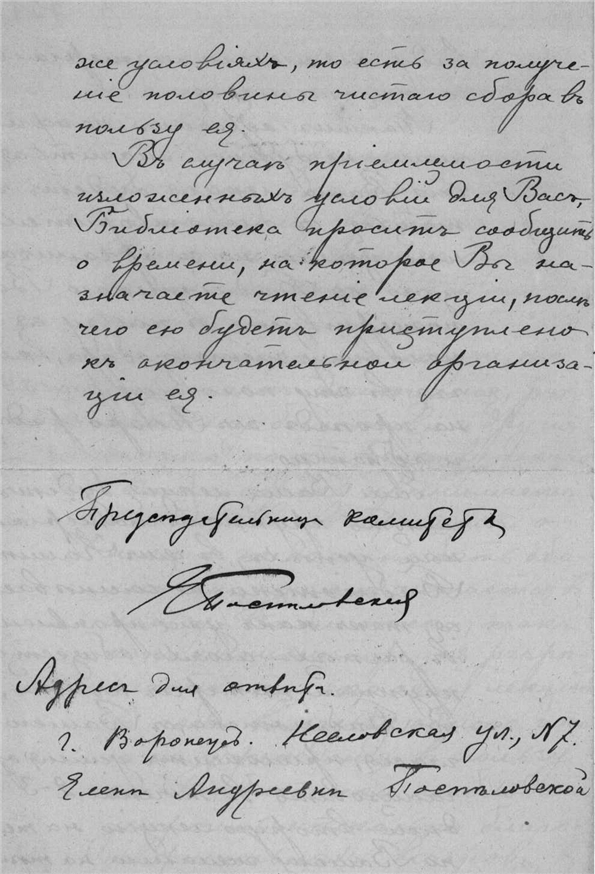 же условіяхъ, то есть за получе-
ніе половины чистаго сбора въ
пользу ея.
Въ случаѣ пріемлемости
изложенныхъ условій для Васъ,
Библіотека проситъ сообщить
о времени, на которое Вы на-
значаете чтеніе лекціи, послѣ
чего ею будетъ приступлено
къ окончательной организа-
ціи ея.
Предсѣдательница комитета
Е Поспѣловская
Адресъ для отвѣта.
г. Воронежъ. ул., N7.
Еленѣ Андреевнѣ Поспѣловской